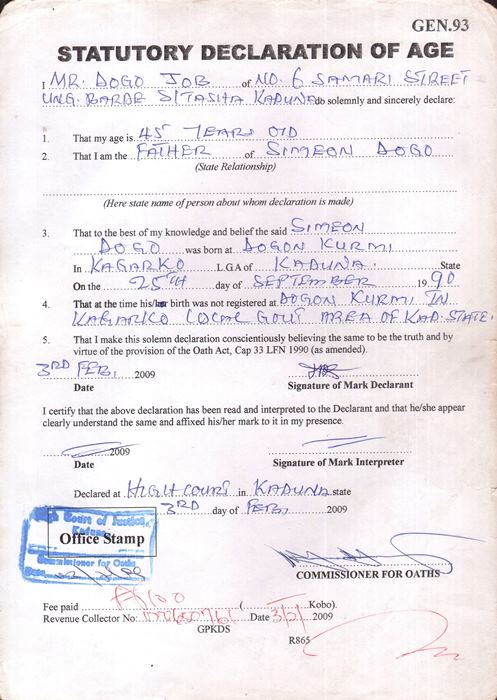 GEN.93
STATUTORY DECLARATION OF AGE
I MR. DOGO JOB of NO. 6 SAMARI STREET
UNG. BARDE S/TASHA KADUNA do solemnly and sincerely declare:
1. That my age is 45 YEARS OLD
2. That I am the FATHER of SIMEON DOGO
(State Relationship)
(Here state name of person about whom declaration is made)
3. That to the best of my knowledge and belief the said SIMEON
DOGO was born at DOGON KURMI
In KAGARKO L.GA of KADUNA State
On the 25TH day of SEPTEMBER 1990
4. That at the time his/her birth was not registered at DOGON KURMI IN
KAGARKO LOCAL GOVT AREA OF KAD. STATE.
5. That I make this solemn declaration conscientiously believing the same to be the truth and by
virtue of the provision of the Oath Act, Cap 33 LFN 1990 (as amended).
3RD FEB, 2009
Date Signature of Mark Declarant
I certify that the above declaration has been read and interpreted to the Declarant and that he/she appear
clearly understand the same and affixed his/her mark to it in my presence.
2009
Date Signature of Mark Interpreter
Declared at HIGH COURT in KADUNA state
3RD day of FEB, 2009
High Court of Justice
Kaduna
Office Stamp
Commissioner for Oaths
Date
COMMISSIONER FOR OATHS
Fee paid ( Kobo).
Revenue Collector No: Date 3/2/2009
GPKDS R865